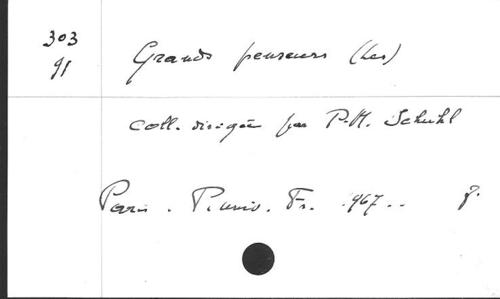 303
91
Grands penseurs (Les)
coll. dirigée par P.-M. Schuhl
Paris. P. univ. Fr. 1967..